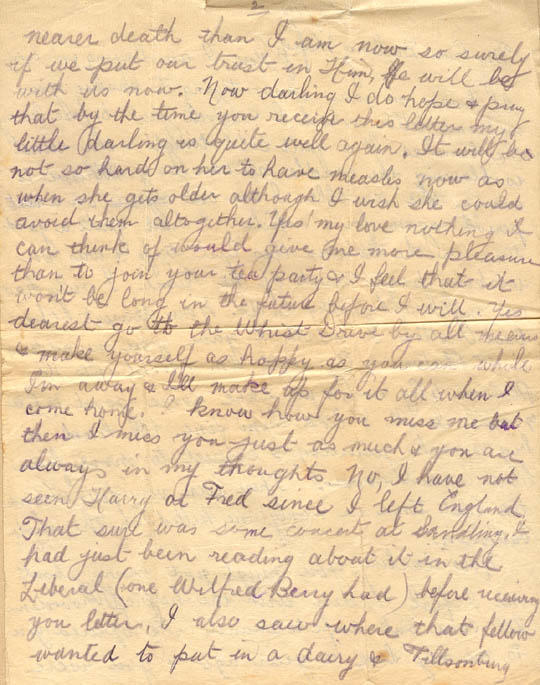 2
nearer death than I am now so surely
if we put our trust in Him, He will be
with us now. Now darling I do hope & pray
that by the time you receive this letter my
little darling is quite well again. It will be
not so hard on her to have measles now as
when she gets older although I wish she could
avoid them altogether. Yes! my love nothing I
can think of would give me more pleasure
than to join your tea party & I feel that it
won't be long in the future before I will. Yes
dearest go to the Whist Drave by all means
& make yourself as happy as you can while
I'm away & I'll make up for it all when I
come home. I know how you miss me but
then I miss you just as much & you are
always in my thoughts No, I have not
seen Harry or Fred since I left England.
That sure was some concert at Sandling. I
had just been reading about it in the
Liberal (one Wilfred Berry had) before receiving
you letter. I also saw where that fellow
wanted to put in a dairy & Tillsonburg